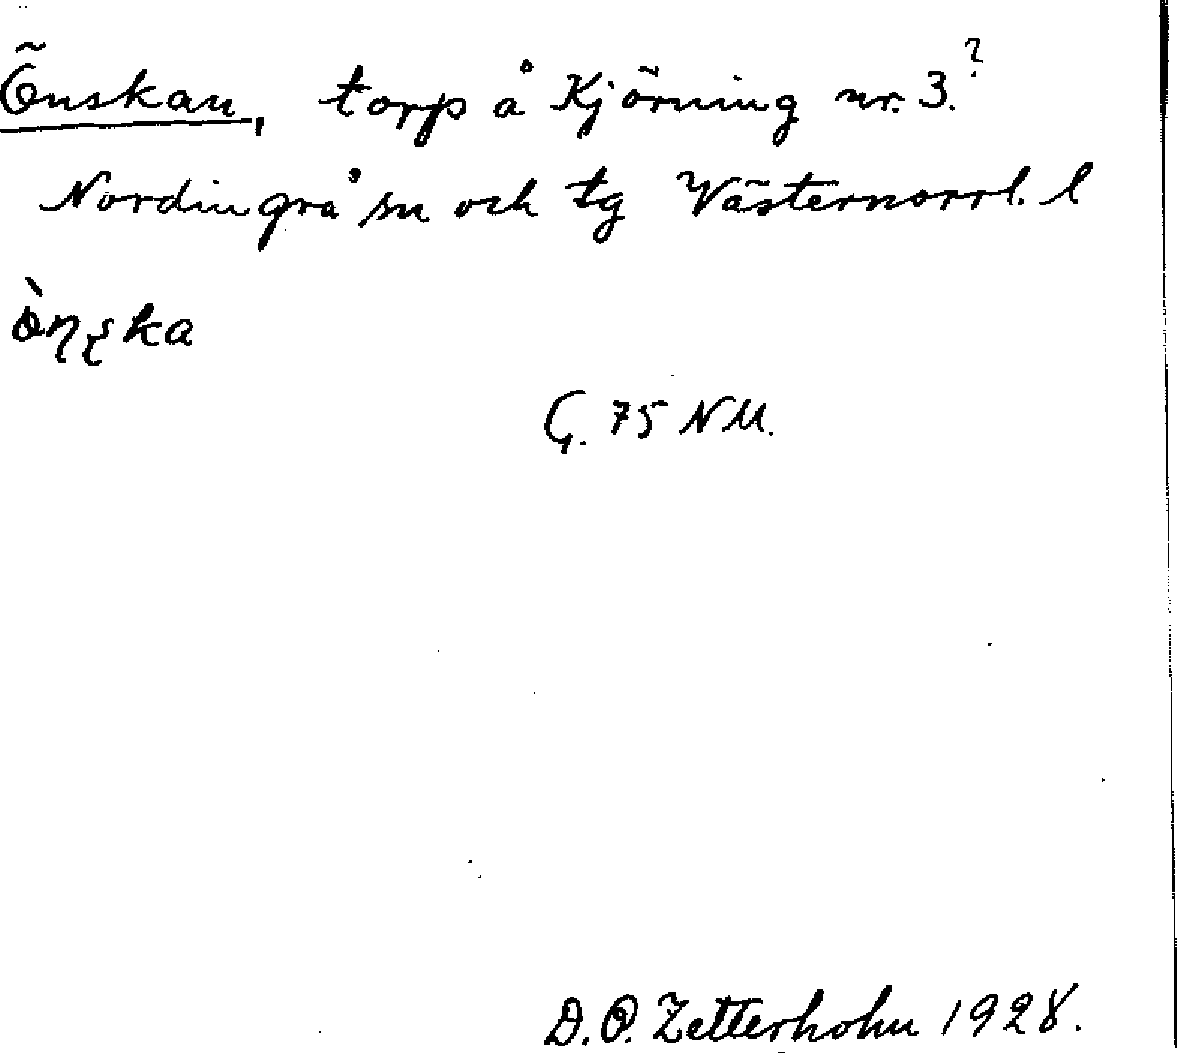 Önskan, torp å Kjörning nr. 3.?
Nordingrå sn och tg Västernorrl. l
ὸŋʂka
G. 75 NM.
D. O. Zetterholm 1928.